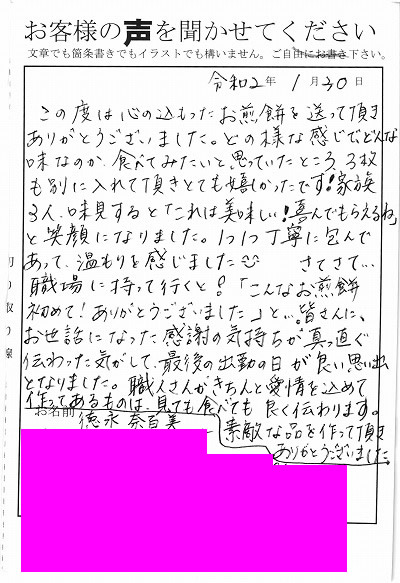 お客様の声を聞かせてください
文章でも箇条書きでもイラストでも構いません。ご自由にお書き下さい。
令和2年 1月30日
この度は心の込もったお煎餅を送って頂き
ありがとうございました。どの様な感じでどんな
味なのか、食べてみたいと思っていたところ 3枚
も別に入れて頂きとても嬉かったです!家族
3人、味見すると「これは美味しい!喜んでもらえるね」
と笑顔になりました。1つ1つ丁寧に包んで
あって、温もりを感じました さてさて…
職場に持って行くと!「こんなお煎餅
初めて!ありがとうございました」と…皆さんに、
お世話になった感謝の気持ちが真っ直ぐ
伝わった気がして、最後の出勤の日が良い思い出
となりました。職人さんがきちんと愛情を込めて
作ってあるものは、見ても食べても良く伝わります。
素敵な品を作って頂き
ありがとうございました。
お名前 徳永奈百美
切り取り線